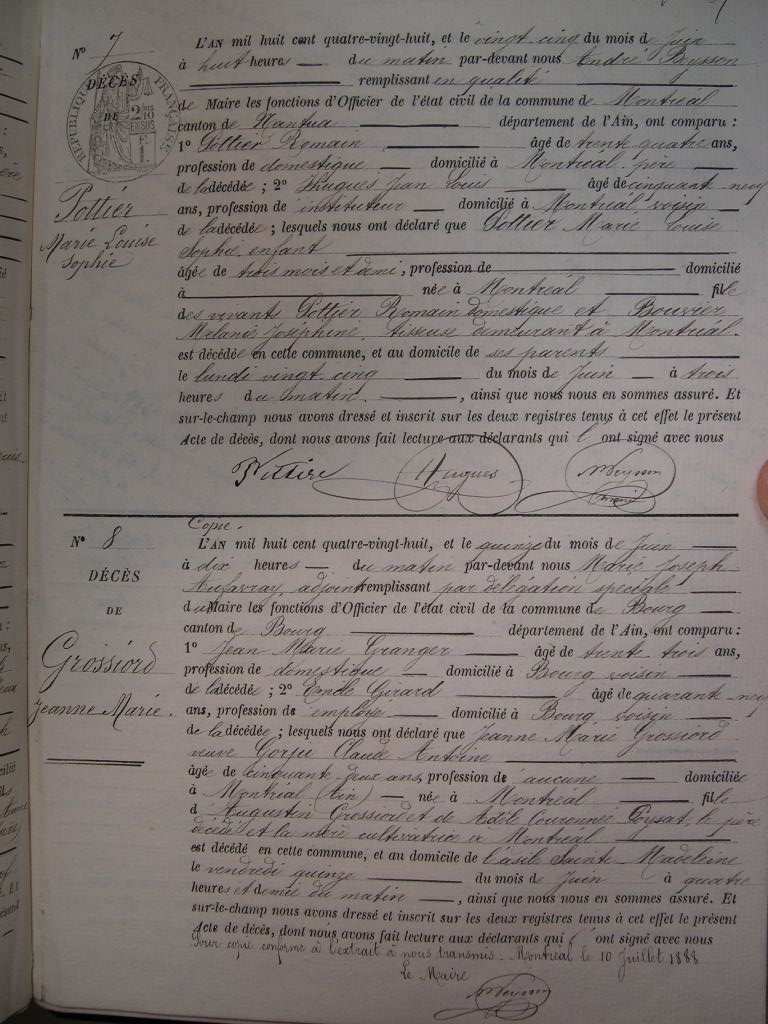 N° 7
L'AN mil huit cent quatre-vingt-huit, et le vingt cinq du mois de Juin
à huit heures du matin par-devant nous André Peysson
remplissant en qualité
de Maire les fonctions d'Officier de l'état civil de la commune de Montréal
canton de Nantua département de l'Ain, ont comparu :
1° Pottier Romain âgé de trente quatre ans,
profession de domestique domicilié à Montréal père
de la décédée ; 2° Hugues Jean Louis âgé de cinquante neuf
ans, profession de instituteur domicilié à Montréal, voisin
de la décédée ; lesquels nous ont déclaré que Pottier Marie Louise
Sophie enfant
âgée de trois mois et demi, profession de domicilié
à née à Montréal fille
des vivants Pottier Romain domestique et Bouvier
Mélanie Joséphine, tisseuse demeurant à Montréal.
est décédée en cette commune, et au domicile de ses parents
le lundi vingt cinq du mois de Juin à trois
heures du matin, ainsi que nous nous en sommes assuré. Et
sur-le-champ nous avons dressé et inscrit sur les deux registres tenus à cet effet le présent
Acte de décès, dont nous avons fait lecture aux déclarants qui l' ont signé avec nous
DÉCÈS
DE
RÉPUBLIQUE FRANÇAISE
Pottier
Marie Louise
Sophie
Hugues
Copie.
N° 8
L'AN mil huit cent quatre-vingt-huit, et le quinze du mois de Juin
à dix heures du matin par-devant nous Marie Joseph
adjoint remplissant par délégation spéciale
du Maire les fonctions d'Officier de l'état civil de la commune de Bourg
canton de Bourg département de l'Ain, ont comparu :
1° Jean Marie Granger âgé de trente trois ans,
profession de domestique domicilié à Bourg voisin
de la décédée ; 2° Emile Girard âgé de quarante neuf
ans, profession de employé domicilié à Bourg, voisin
de la décédée ; lesquels nous ont déclaré que Jeanne Marie Grossiord
veuve Gorju Claude Antoine
âgée de cinquante deux ans, profession de aucune domiciliée
à Montréal (Ain) née à Montréal fille
d'Augustin Grossiord et de Adèle Couronnée Poysat, le père
décédé et la mère cultivatrice à Montréal
est décédé en cette commune, et au domicile de l'asile Sainte Madeleine
le vendredi quinze du mois de Juin à quatre
heures et demie du matin, ainsi que nous nous en sommes assuré. Et
sur-le-champ nous avons dressé et inscrit sur les deux registres tenus à cet effet le présent
Acte de décès, dont nous avons fait lecture aux déclarants qui l' ont signé avec nous
DÉCÈS
DE
Grossiord
Jeanne Marie.
Pour copie conforme à l'extrait à nous transmis. Montréal le 10 Juillet 1888
Le Maire